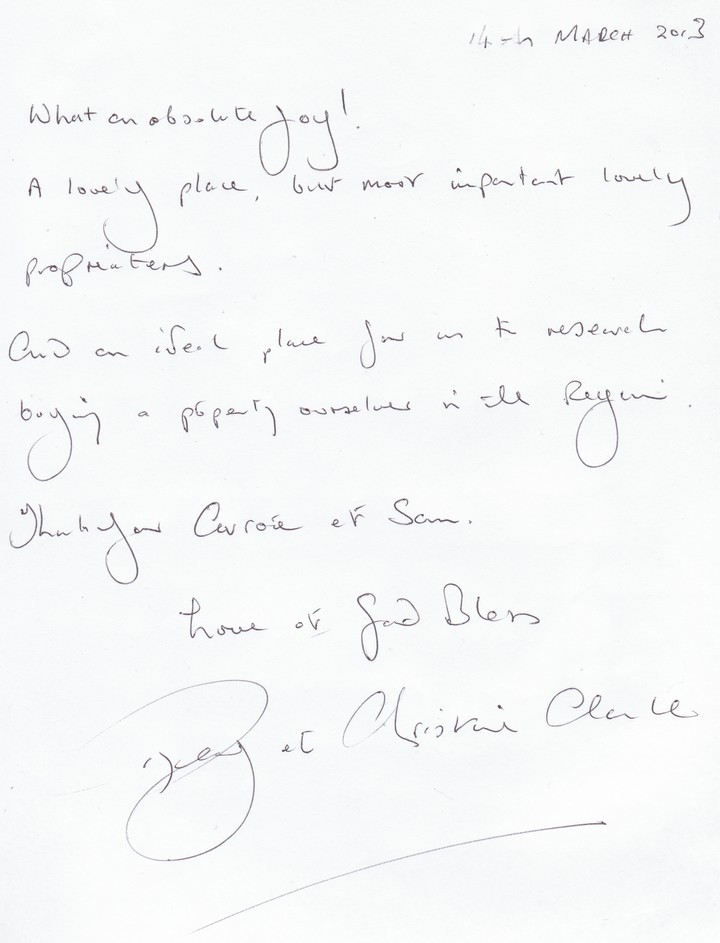 14th MARCH 2013
What an absolute joy!
A lovely place, but most important lovely
proprieters.
And an ideal place for us to research
buying a property ourselves in the Region.
Thank you et Sam.
Love et God Bless
et Christine Clarke